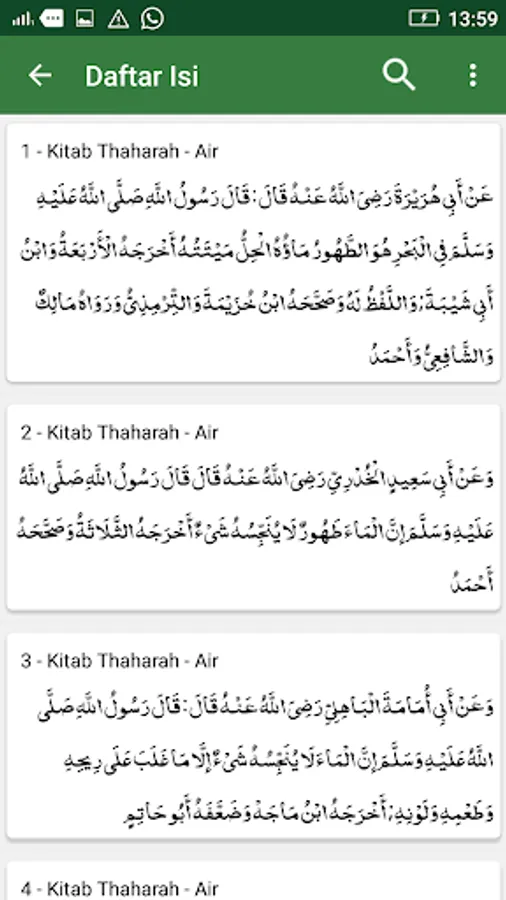 13:59
Daftar Isi
1 - Kitab Thaharah - Air
عَنْ أَبِي هُرَيْرَةَ رَضِيَ اللَّهُ عَنْهُ قَالَ: قَالَ رَسُولُ اللَّهِ صَلَّى اللَّهُ عَلَيْهِ
وَسَلَّمَ فِي الْبَحْرِ هُوَ الطَّهُورُ مَاؤُهُ الْحِلُّ مَيْتَتُهُ أَخْرَجَهُ الْأَرْبَعَةُ وَابْنُ
أَبِي شَيْبَةَ؛ وَاللَّفْظُ لَهُ وَصَحَّحَهُ ابْنُ خُزَيْمَةَ وَالتِّرْمِذِيُّ وَرَوَاهُ مَالِكٌ
وَالشَّافِعِيُّ وَأَحْمَدُ
2 - Kitab Thaharah - Air
وَعَنْ أَبِي سَعِيدٍ الْخُدْرِيِّ رَضِيَ اللَّهُ عَنْهُ قَالَ قَالَ رَسُولُ اللَّهِ صَلَّى اللَّهُ
عَلَيْهِ وَسَلَّمَ إِنَّ الْمَاءَ طَهُورٌ لَا يُنَجِّسُهُ شَيْءٌ أَخْرَجَهُ الثَّلَاثَةُ وَصَحَّحَهُ
أَحْمَدُ
3 - Kitab Thaharah - Air
وَعَنْ أَبِي أُمَامَةَ الْبَاهِلِيِّ رَضِيَ اللَّهُ عَنْهُ قَالَ: قَالَ رَسُولُ اللَّهِ صَلَّى
اللَّهُ عَلَيْهِ وَسَلَّمَ إِنَّ الْمَاءَ لَا يُنَجِّسُهُ شَيْءٌ إِلَّا مَا غَلَبَ عَلَى رِيحِهِ
وَطَعْمِهِ وَلَوْنِهِ؛ أَخْرَجَهُ ابْنُ مَاجَهْ وَضَعَّفَهُ أَبُو حَاتِمٍ
4 - Kitab Thaharah - Air